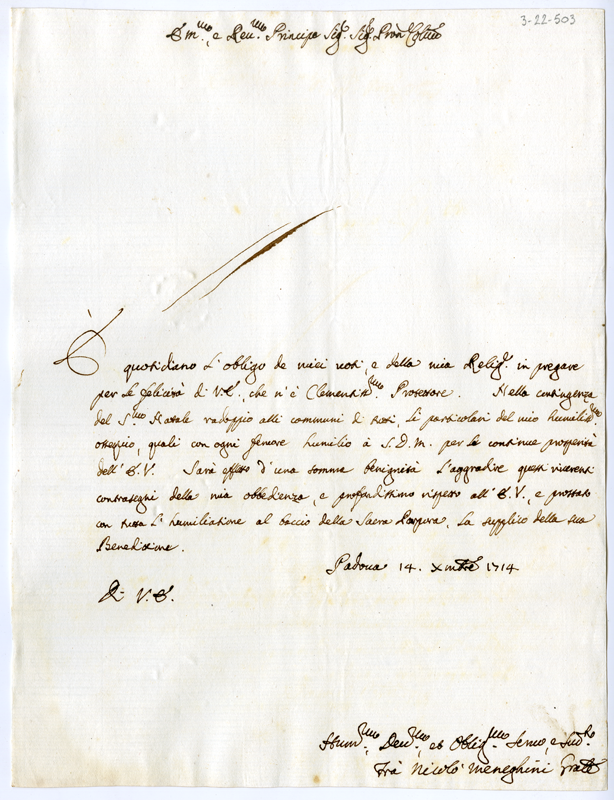 3-22-503
Em.mo, e Rev.mo Principe Sig.r Sig.r Pron Col.mo
È quotidiano l'obligo de miei voti, e della mia Relig.e in pregare
per le felicità di V.E., che n'è Clementiss.mo Protettore. Nella contingenza
del S.mo Natale radoppio alli communi di tutti, li particolari del mio humiliss.mo
ossequio, quali con ogni fervore humilio à S.D.M. per le continue prosperità
dell'E.V. Sarà effetto d'una somma benignità l'aggradire questi riverenti
contrasegni della mia obbedienza, e profondissimo rispetto all'E.V., e prostrato
con tutta l'humiliatione al baccio della Sacra Porpora, la supplico della sua
Benedittione.
Padova 14. Xmbre 1714
Di V.E.
Hum.mo Dev.mo, et Oblig.mo Servo, e Sud.to
Frà Nicolò Meneghini